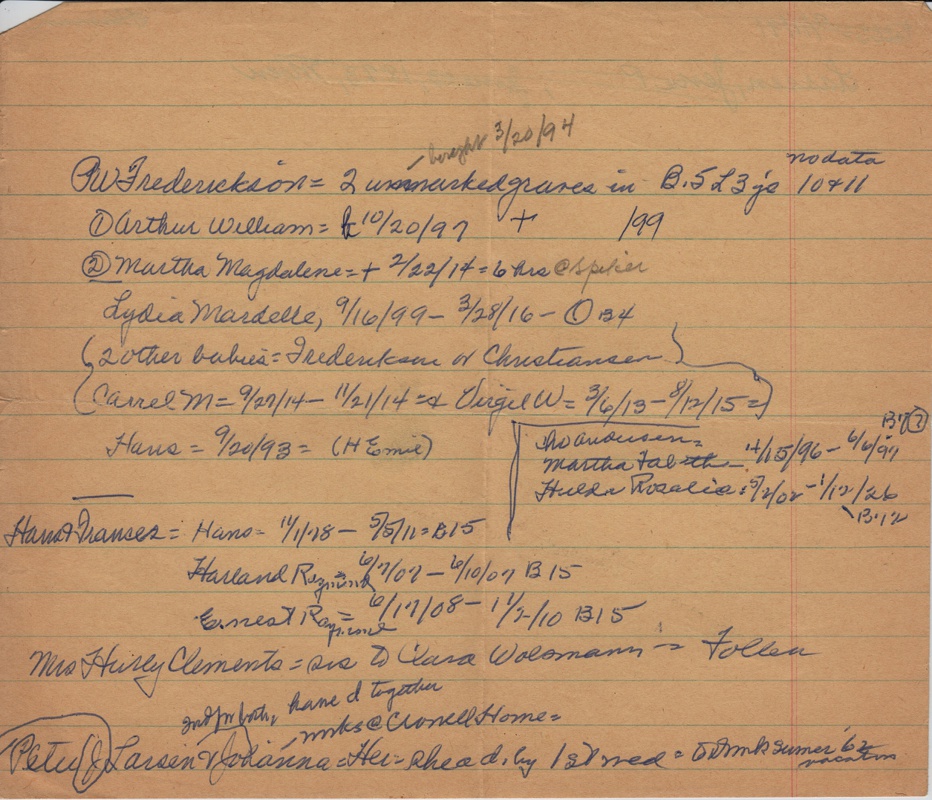 bought 3/20/94
no data
PW Frederickson = 2 unmarked graves in B.5 L3 gs 10+11
① Arthur William = b 10/20/97 + /99
② Martha Magdalene = + 2/22/14 = 6 hrs @
Lydia Mardelle, 9/16/99 – 3/28/16 – ① B4
(2 other babies = Frederikson or Christiansen)
(Carrel M = 9/27/14 – 11/21/14 = + Virgil W = 3/6/13 – 8/12/15 =)
B7 ②
Hans = 9/20/93 = (H Emie)
Martha 4/15/96 – 6/6/97
Hulda Rosalia = 5/2/02 – 1/12/26
B.12
Hans + Frances = Hans = 11/1/78 – 5/5/11 = B15
Harland Raymond = 6/7/07 – 6/10/07 B15
Ernest Raymond = 6/17/08 – 11/2/10 B15
Mrs Clements = sis to Clara Wolsmann =
2nd for both, have d together
mks @ Crowell Home =
Peter (J) Larsen & Johanna = He = she a d. by 1st wed = to Sumer '62
vacation